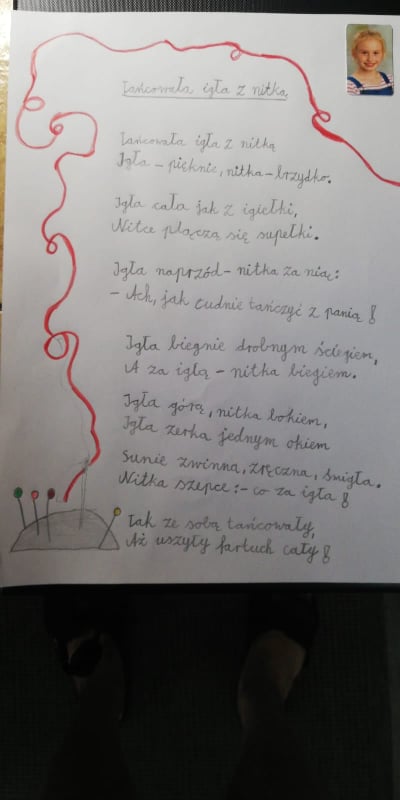 Tańcowała igła z nitką
Tańcowała igła z nitką
Igła - pięknie, nitka - brzydko.
Igła cała jak z igiełki,
Nitce plączą się supełki.
Igła naprzód - nitka za nią:
- Ach, jak cudnie tańczyć z panią!
Igła biegnie drobnym ściegiem,
A za igłą - nitka biegiem.
Igła górą, nitka bokiem,
Igła zerka jednym okiem
Sunie zwinna, zręczna, śmigła.
Nitka szepce: - co za igła!
Tak ze sobą tańcowały,
Aż uszyły fartuch cały!